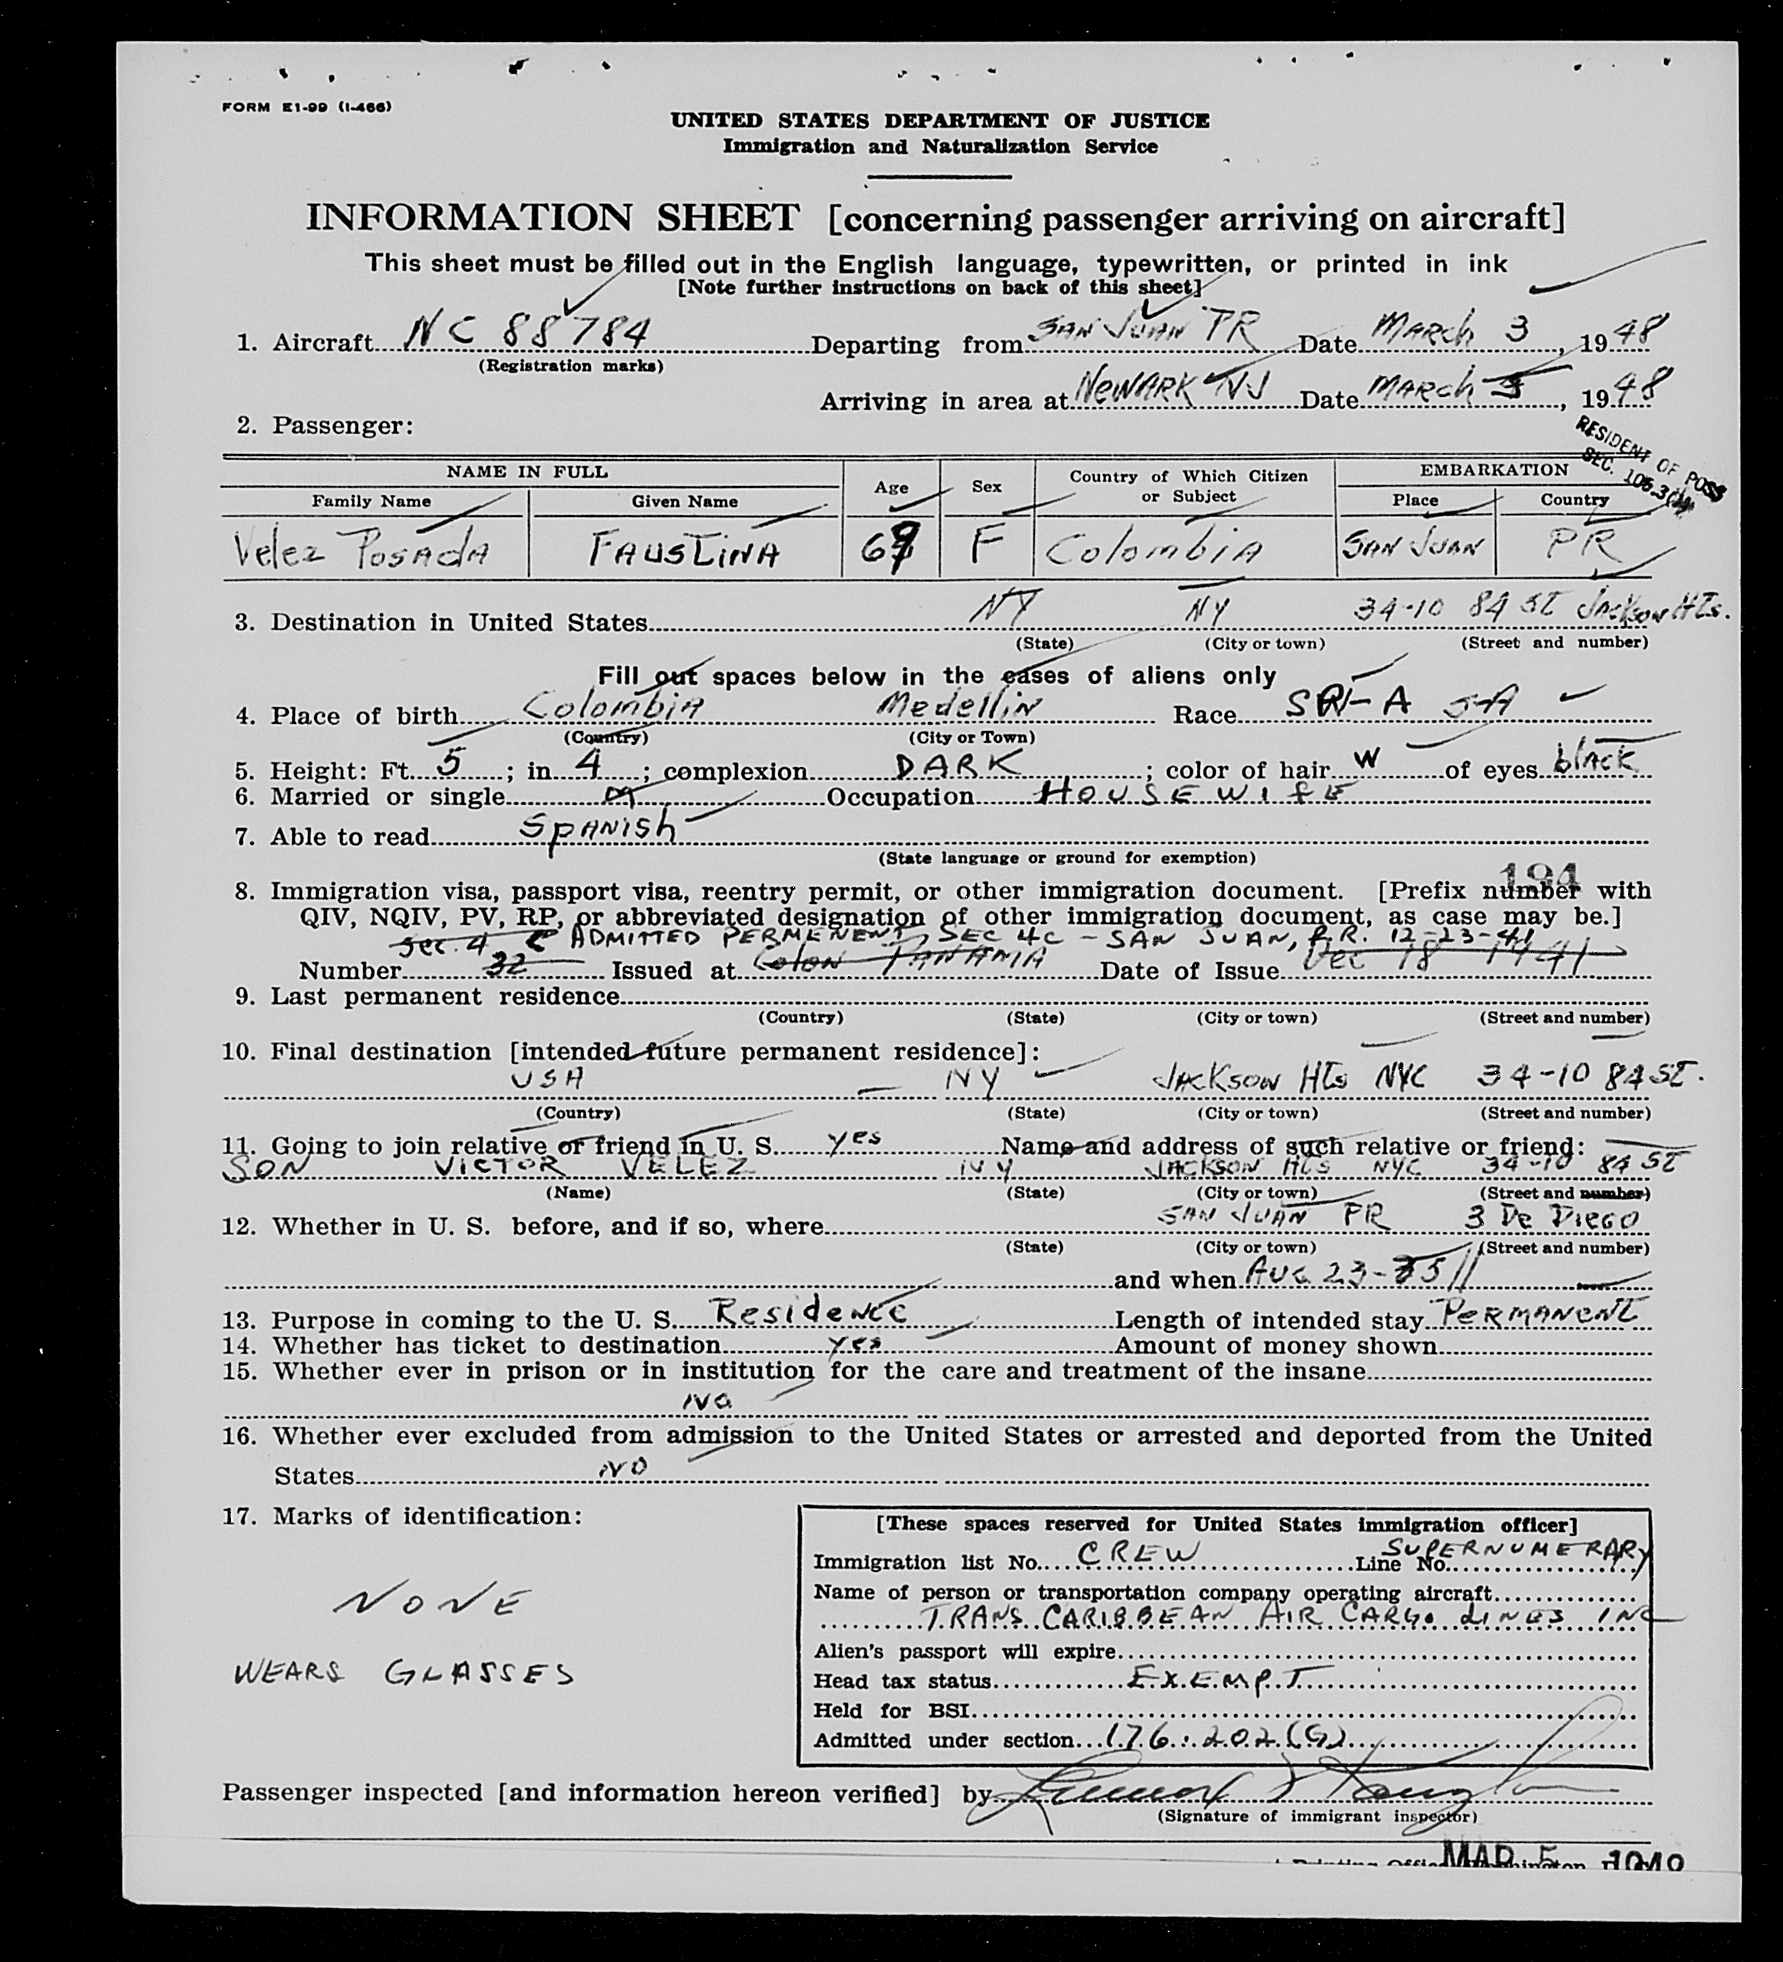 FORM E1-99 (I-466)
UNITED STATES DEPARTMENT OF JUSTICE
Immigration and Naturalization Service
INFORMATION SHEET [concerning passenger arriving on aircraft]
This sheet must be filled out in the English language, typewritten, or printed in ink
[Note further instructions on back of this sheet]
1. Aircraft NC 88784 Departing from SAN JUAN PR Date MARCH 3, 1948
(Registration marks)
Arriving in area at NEWARK NJ Date MARCH 5, 1948
2. Passenger:
RESIDENT OF POSS
SEC. 105.3
NAME IN FULL Age Sex Country of Which Citizen or Subject EMBARKATION
Family Name Given Name Place Country
Velez POSADA FAUSTINA F COLOMBIA SAN JUAN PR
3. Destination in United States NY NY 34-10 84 ST JACKSON HTS.
(State) (City or town) (Street and number)
Fill out spaces below in the cases of aliens only
4. Place of birth COLOMBIA MEDELLIN Race S-A
(Country) (City or Town)
5. Height: Ft. 5; in. 4; complexion DARK; color of hair W of eyes black
6. Married or single M Occupation HOUSEWIFE
7. Able to read SPANISH
(State language or ground for exemption)
194
8. Immigration visa, passport visa, reentry permit, or other immigration document. [Prefix number with
QIV, NQIV, PV, RP, or abbreviated designation of other immigration document, as case may be.]
Sec. 4 C ADMITTED PERMENENT, SEC 4C - SAN JUAN, P.R. 12-23-41
Number 32 Issued at COLON PANAMA Date of Issue Dec 18 1941
9. Last permanent residence
(Country) (State) (City or town) (Street and number)
10. Final destination [intended future permanent residece]:
USA NY JACKSON HTS NYC 34-10 84 ST.
(Country) (State) (City or town) (Street and number)
11. Going to join relative or friend in U. S. yes Name and address of such relative or friend:
SON VICTOR VELEZ NY JACKSON HTS NYC 34-10 84 ST
(Name) (State) (City or town) (Street and number)
12. Whether in U. S. before, and if so, where SAN JUAN PR 3 De DIEGO
(State) (City or town) (Street and number)
and when AUG 23-35
13. Purpose in coming to the U. S. Residence Length of intended stay PERMANENT
14. Whether has ticket to destination yes Amount of money shown
15. Whether ever in prison or in institution for the care and treatment of the insane
NO
16. Whether ever excluded from admission to the United States or arrested and deported from the United
States NO
17. Marks of identification:
NONE
WEARS GLASSES
[These spaces reserved for United States immigration officer]
Immigration list No. CREW Line No. SUPERNUMERARY
Name of person or transportation company operating aircraft
TRANS CARIBBEAN AIR CARGO LINES INC
Alien's passport will expire
Head tax status EXEMPT
Held for BSI
Admitted under section 176.202(G)
Passenger inspected [and information hereon verified] by
(Signature of immigrant inspector)
MAR 5 1948